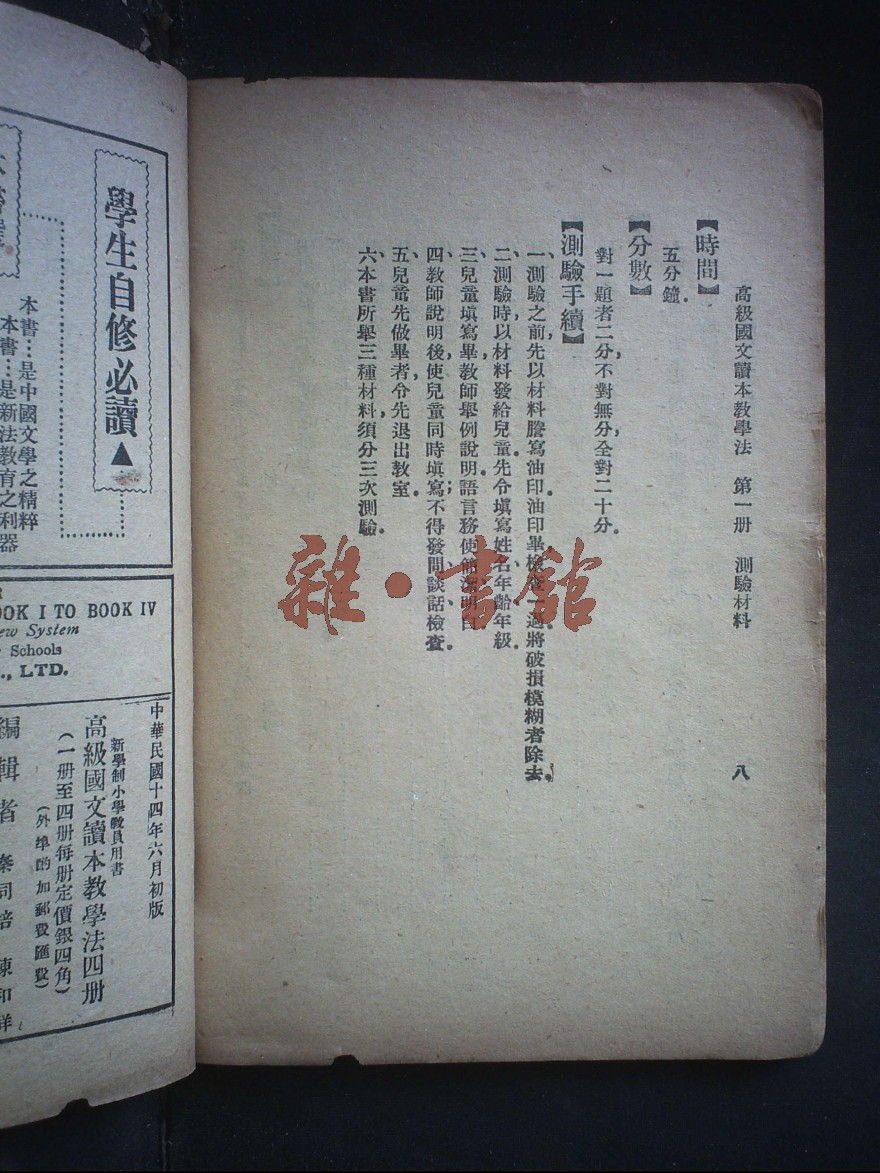 高級國文讀本教學法 第一册 測驗材料 八
【時間】
五分鐘。
【分數】
對一題者二分，不對無分，全對二十分。
【測驗手續】
一、測驗之前，先以材料謄寫油印，油印畢，檢查一過，將破損模糊者除去。
二、測驗時以材料發給兒童，先令填寫姓名、年齡、年級。
三、兒童填寫畢，教師舉例說明，語言務使簡潔明白。
四、教師說明後，使兒童同時填寫；不得發問、談話、檢查。
五、兒童先做畢者，令先退出教室。
六、本書所舉三種材料，須分三次測驗。
雜·書館
學生自修必讀▲
本書…是中國文學之精粹
本書…是新法教育之利器
OOK I TO BOOK IV
ew System
Schools
., LTD.
中華民國十四年六月初版
新學制小學教員用書
高級國文讀本教學法四册
（一册至四册每册定價銀四角）
（外埠酌加郵費匯費）
編輯者 秦同培 陳和祥